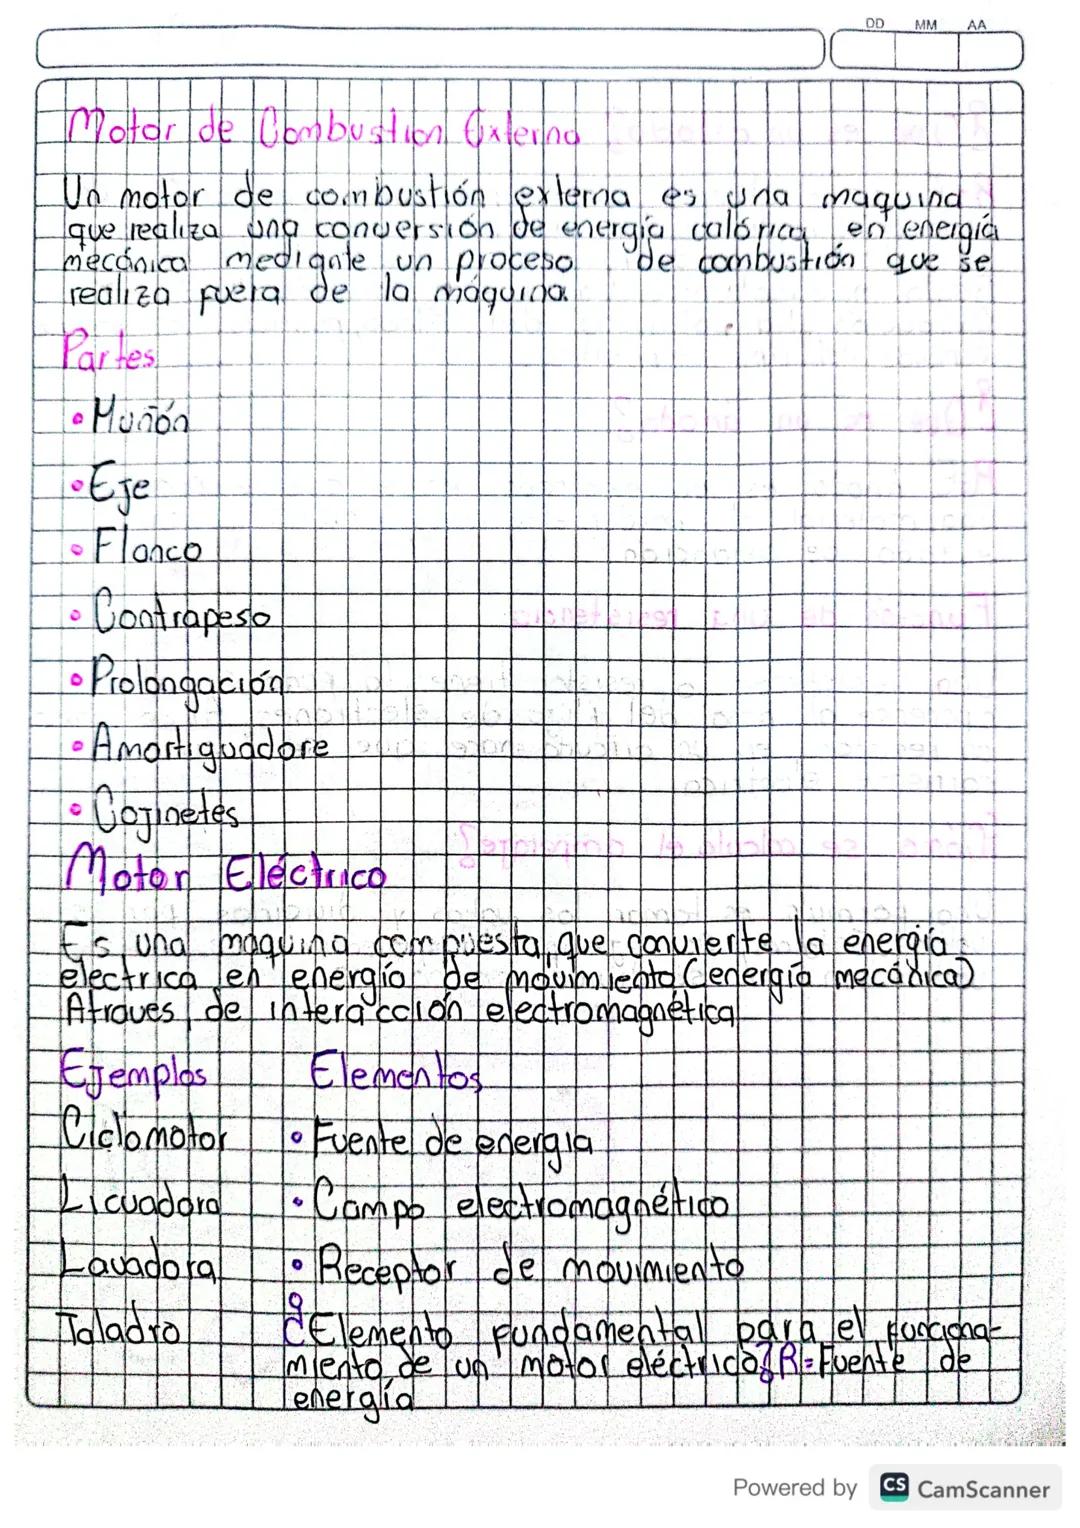 DD MM AA
Motor de Combustion Externa
Un motor de combustión externa es una maquina
que realiza una conversión de energía calórica en energía
mecánica mediante un proceso de combustión que se
realiza fuera de la máquina.
Partes
• Muñón
• Eje
• Flanco
• Contrapeso
• Prolongación
• Amortiguadore
• Cojinetes
Motor Eléctrico
Es una maquina compuesta que convierte la energía
electrica en energía de movimiento (energía mecánica)
Atraves de interacción electromagnética
Ejemplos Elementos
Ciclomotor • Fuente de energia
Licuadora • Campo electromagnético
Lavadora • Receptor de movimiento
Taladro ¿Elemento fundamental para el funciona-
miento de un motor eléctrico? R=Fuente de
energía
Powered by CS CamScanner